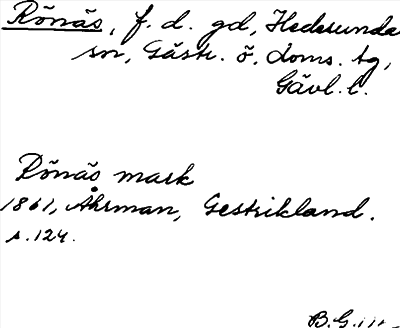 Rönäs, f. d. gd, Hedesunda
sn, Gästr. ö. doms. tg,
Gävl. l.
Rönäs mark
1861, Åhrman, Gestrikland.
s. 124.
B.G.